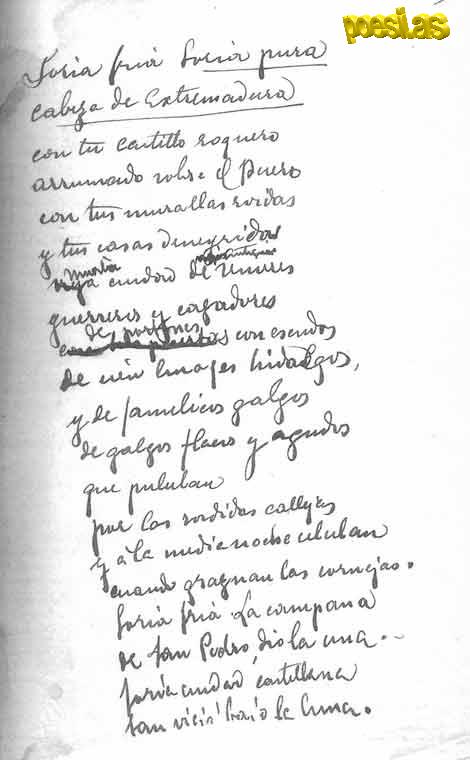 poesías
Soria fria Soria pura
cabeza de Extremadura
con tu castillo roquero
arruinado sobre el Duero
con tus murallas roidas
y tus casas denegridas
muerta
ciudad de señores
guerreros y cazadores
de portones
con escudos
de cien linages hidalgos,
y de famelicos galgos
de galgos flacos y agudos
que pululan
por las sordidas callejas
y á la media noche ululan
cuando graznan las cornejas.
Soria fria. La campana
de San Pedro dio la una.
Soria ciudad castellana
tan bajo la luna.